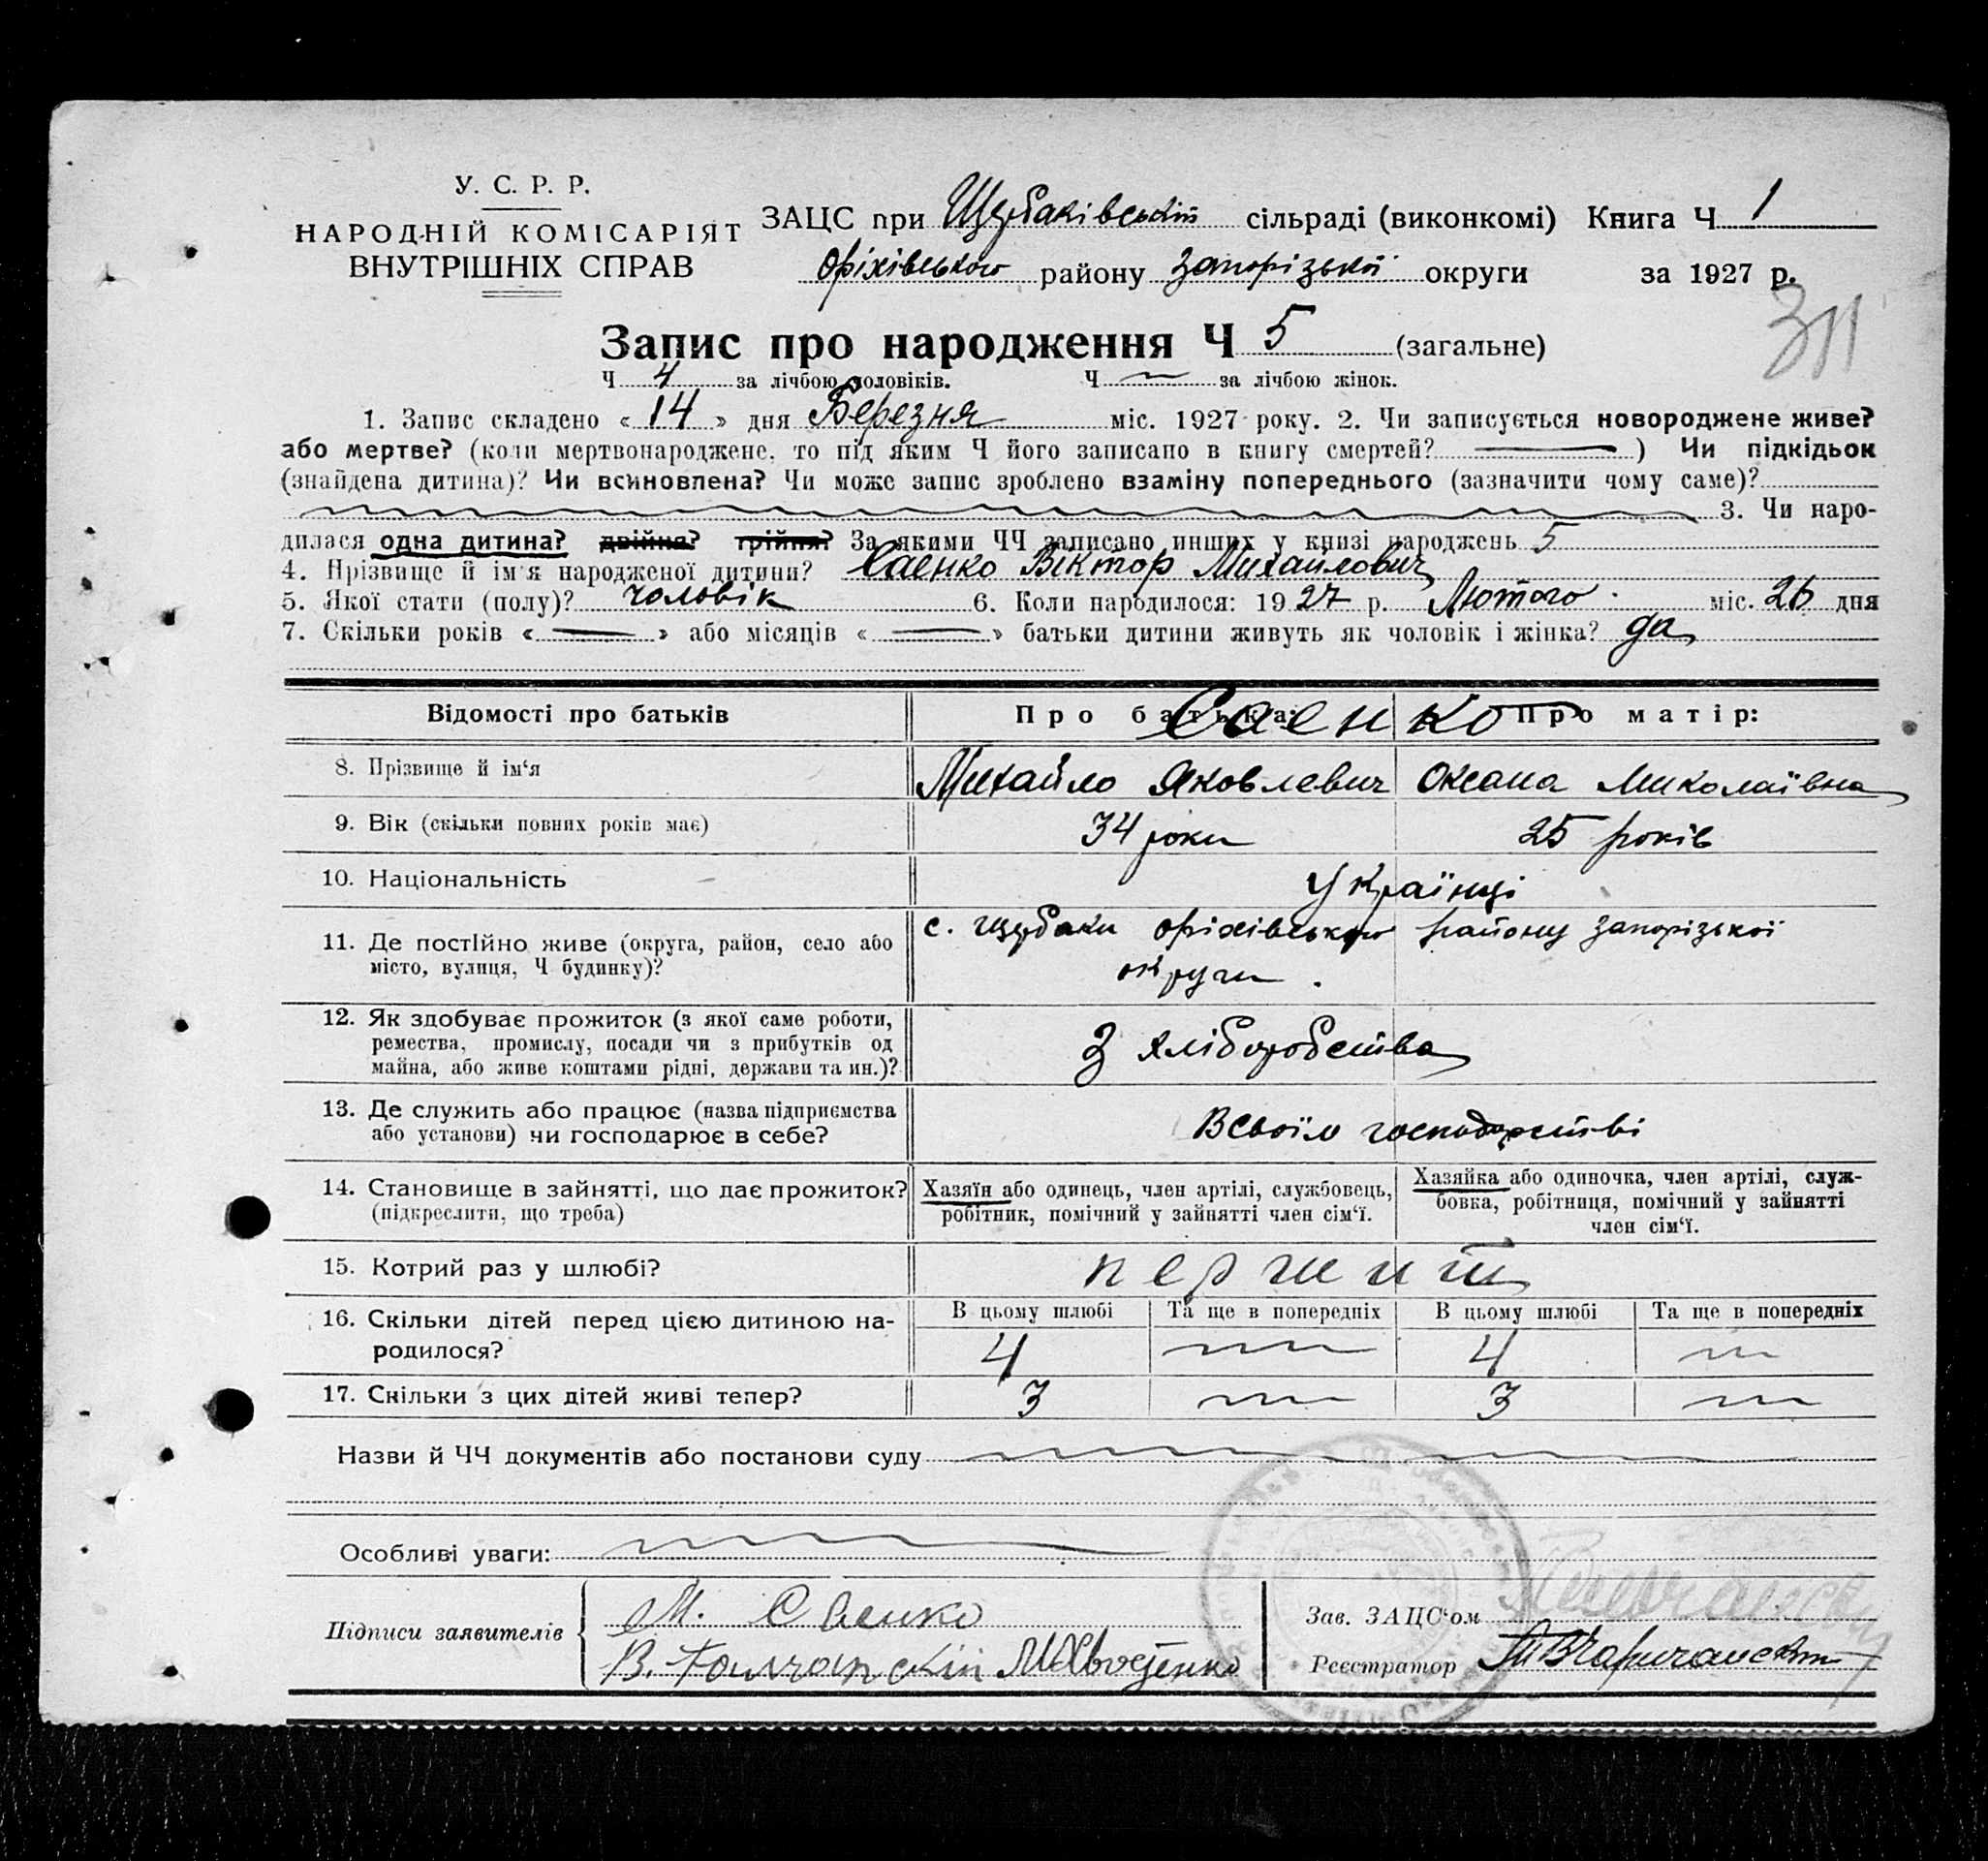 У. С. Р. Р.
НАРОДНІЙ КОМІСАРІЯТ
ВНУТРІШНІХ СПРАВ
ЗАЦС при Щербаківській сільраді (виконкомі) Книга Ч 1
Оріхівського району Запорізької округи за 1927 р.
311
Запис про народження Ч 5 (загальне)
Ч 4 за лічбою чоловіків. Ч за лічбою жінок.
1. Запис складено « 14 » дня Березня міс. 1927 року. 2. Чи записується новороджене живе?
або мертве? (коли мертвонароджене, то під яким Ч його записано в книгу смертей? ) Чи підкідьок
(знайдена дитина)? Чи всиновлена? Чи може запис зроблено взаміну попереднього (зазначити чому саме)?
3. Чи наро-
дилася одна дитина? двійня? трійня? За якими ЧЧ записано инших у книзі народжень 5
4. Прізвище й ім'я народженої дитини? Саенко Віктор Михайлович
5. Якої стати (полу)? чоловік 6. Коли народилося: 19 27 р. Лютого міс. 26 дня
7. Скільки років « » або місяців « » батьки дитини живуть як чоловік і жінка? да
Відомості про батьків Про батька: Про матір:
Саенко
8. Прізвище й ім'я Михайло Яковлевич Оксана Миколаївна
9. Вік (скільки повних років має) 34 роки 25 років
10. Національність Українці
11. Де постійно живе (округа, район, село або місто, вулиця, Ч будинку)? с. Щербаки Оріхівського району Запорізької
округи.
12. Як здобуває прожиток (з якої саме роботи,
ремества, промислу, посади чи з прибутків од
майна, або живе коштами рідні, держави та ин.)?
З хліборобства
13. Де служить або працює (назва підприємства
або установи) чи господарює в себе?
В своїм господарстві
14. Становище в зайнятті, що дає прожиток?
(підкреслити, що треба)
Хазяїн або одинець, член артілі, службовець,
робітник, помічний у зайнятті член сім'ї.
Хазяйка або одиночка, член артілі, служ-
бовка, робітниця, помічний у зайнятті
член сім'ї.
15. Котрий раз у шлюбі?
16. Скільки дітей перед цією дитиною на-
родилося?
В цьому шлюбі Та ще в попередніх В цьому шлюбі Та ще в попередніх
4 4
17. Скільки з цих дітей живі тепер? 3 3
Назви й ЧЧ документів або постанови суду
Особливі уваги:
Підписи заявителів
М. Саенко
В.
Зав. ЗАЦС'ом
Реєстратор